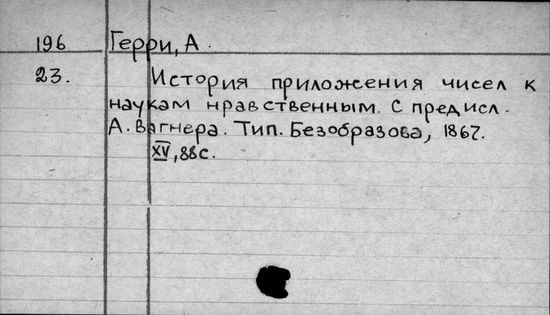 196 Герри, А.
23. История приложения чисел к
наукам нравственным. С предисл.
А. Вагнера. Тип. Безобразова, 1867.
XV, 88с.